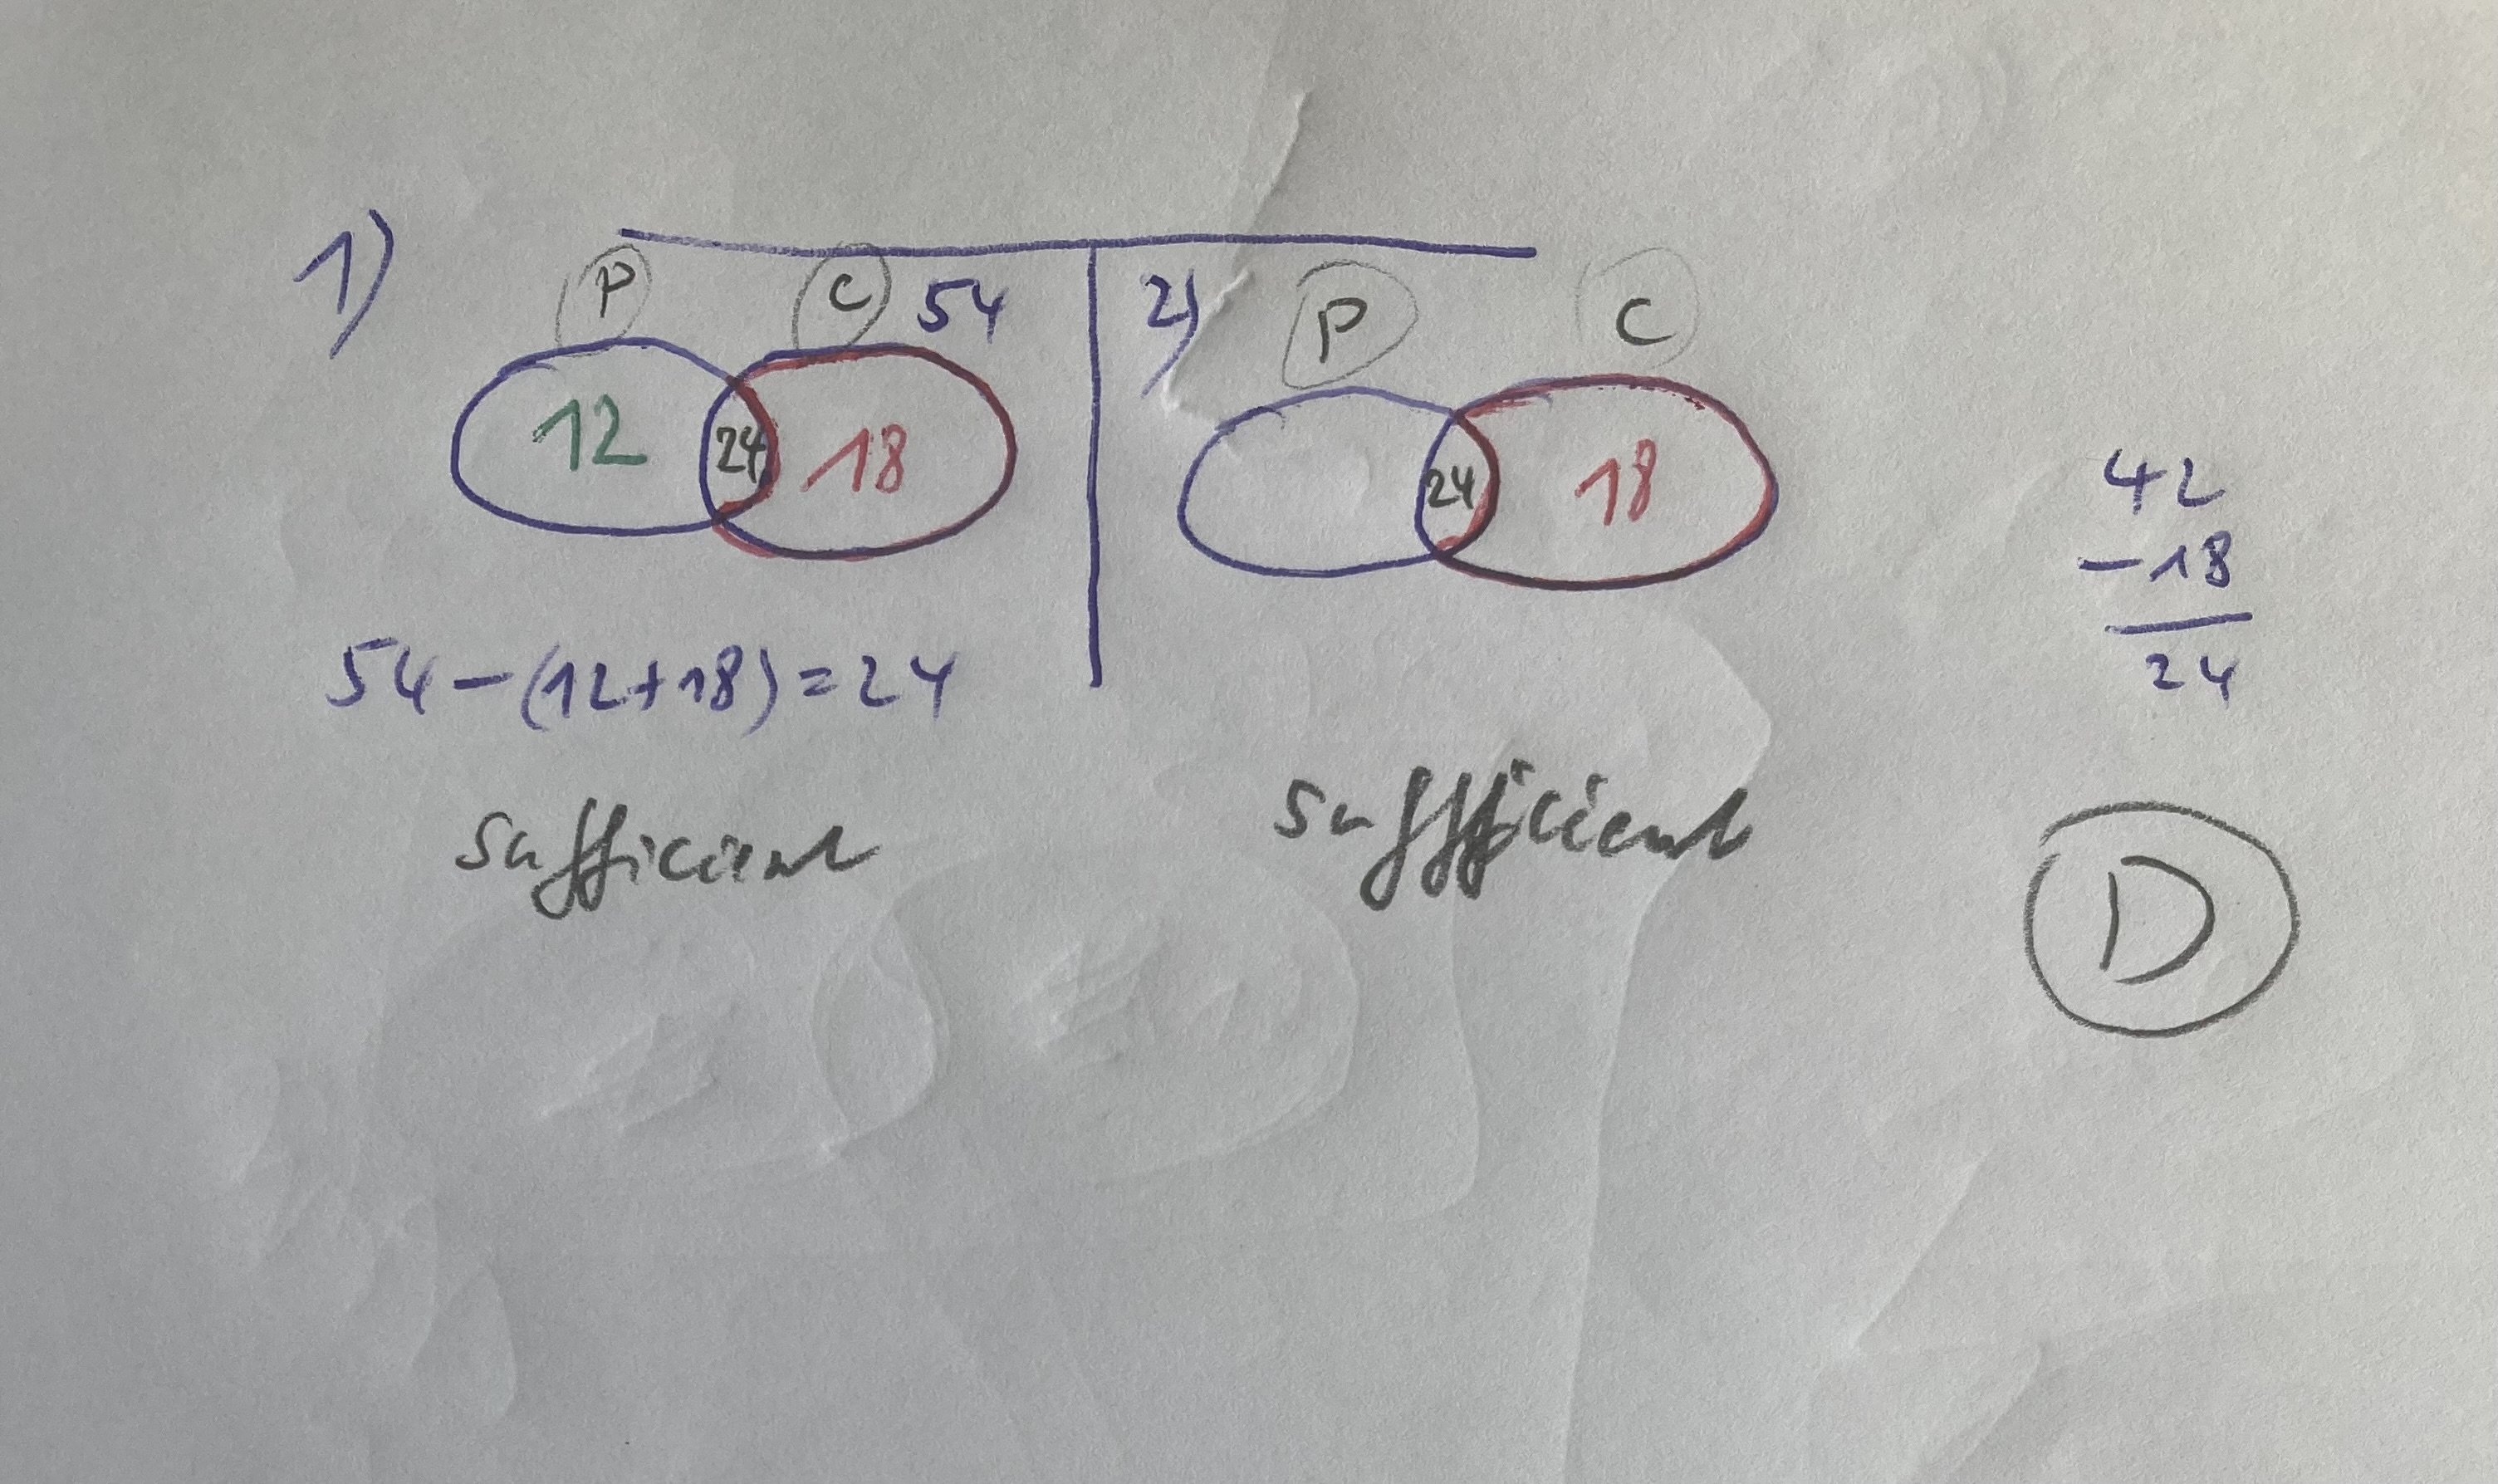 1)
P C 54
12 24 18
54-(12+18)=24
sufficient
2)
P C
24 18
sufficient
42
-18
24
D